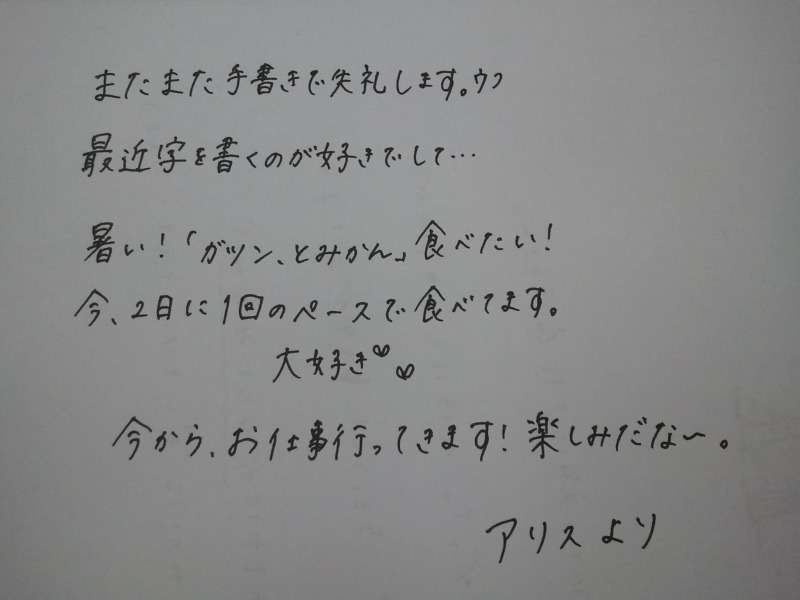 またまた手書きで失礼します。ウフ
最近字を書くのが好きでして…
暑い!「ガツン、とみかん」食べたい!
今、2日に1回のペースで食べてます。
大好き♡♡
今から、お仕事行ってきます!楽しみだな〜。
アリスより